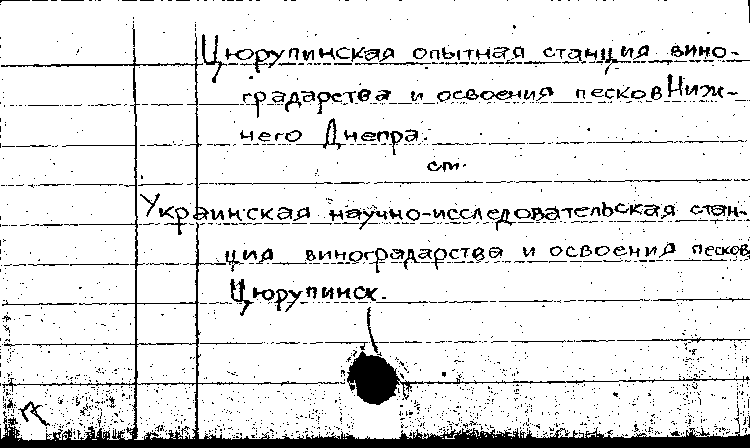 Цюрупинская опытная станция вино-
градарства и освоения песков Ниж-
него Днепра.
см.
Украинская научно-исследовательская стан-
ция виноградарства и освоения песков
Цюрупинск.